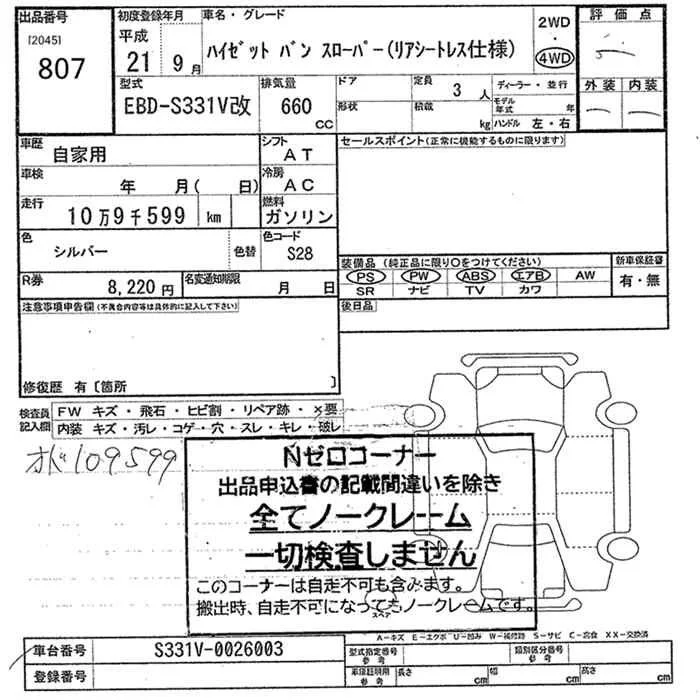 出品番号
[2045]
807
初度登録年月
平成
21 9月
車名・グレード
ハイゼット バン スローパー(リアシートレス仕様)
2WD
・
4WD
評価点
外装 内装
型式
EBD-S331V改
排気量
660
CC
ドア
形状
定員
3人
積載
kg
ディーラー・並行
モデル年式 年
ハンドル 左・右
車歴
自家用
シフト
AT
車検
年 月( 日)
冷房
AC
走行
10万9千599 km
燃料
ガソリン
色
シルバー
色替
色コード
S28
R券
8,220円
名変通知期限
月 日
セールスポイント(正常に機能するものに限ります)
装備品(純正品に限り○をつけてください)
PS PW ABS エアB AW
SR ナビ TV カワ
新車保証書
有・無
後日品
注意事項申告欄(不具合内容等は具体的に記入して下さい)
修復歴 有〔箇所 〕
検査員
記入欄
FW キズ・飛石・ヒビ割・リペア跡・×要
内装 キズ・汚レ・コゲ・穴・スレ・キレ・破レ
オド109599
Nゼロコーナー
出品申込書の記載間違いを除き
全てノークレーム
一切検査しません
このコーナーは自走不可も含みます。
搬出時、自走不可になってもノークレームです。
スペア
A-キズ E-エクボ U-凹み W-補修跡 S-サビ C-腐食 XX-交換済
車台番号
S331V-0026003
登録番号
型式指定番号
参考
類別区分番号
参考
車庫証明用
参考
長さ cm
幅 cm
高さ cm